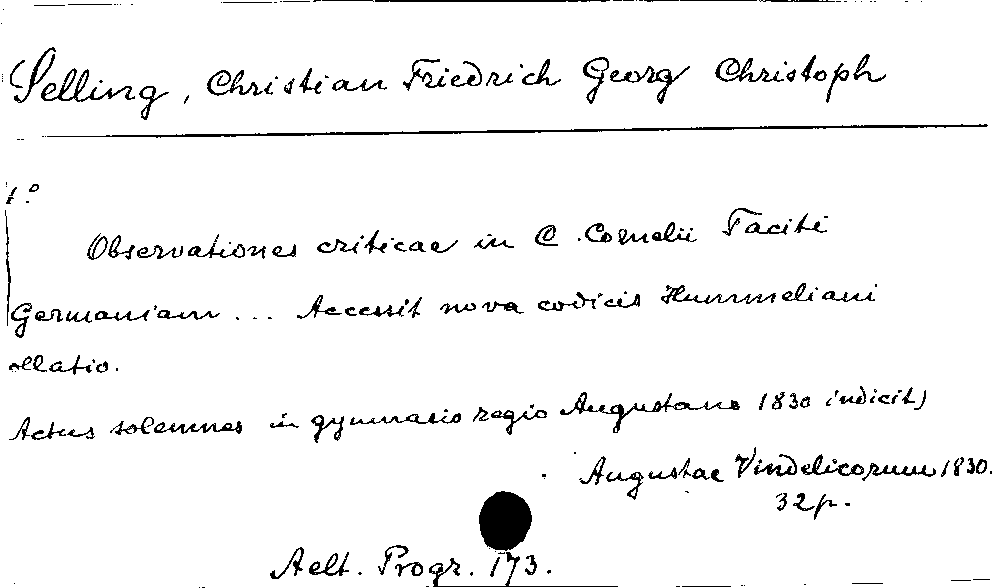 Selling, Christian Friedrich Georg Christoph
1.°
Observationes criticae in C. Cornelii Taciti
Germaniam ... Accessit nova codicis Hummeliani
ollatio.
Actus solemnes in gymnasio regio Augustano 1830 indicit)
Augustae Vindelicorum 1830.
32 p.
Aelt. Progr. 173.